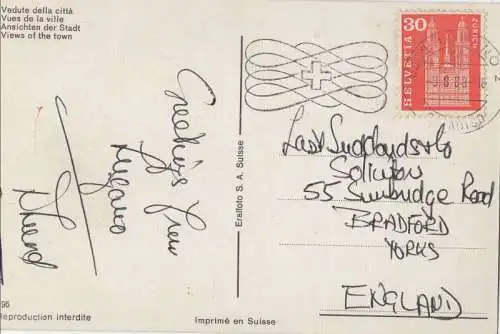 Vedute della città
Vues de la ville
Ansichten der Stadt
Views of the town
Greetings from
Lugano
Eralfoto S. A. Suisse
30
HELVETIA
ZÜRICH
Last Suddards & Co
Solicitors
55 Sunbridge Road
BRADFORD
YORKS
ENGLAND
95
Reproduction interdite
Imprimé en Suisse